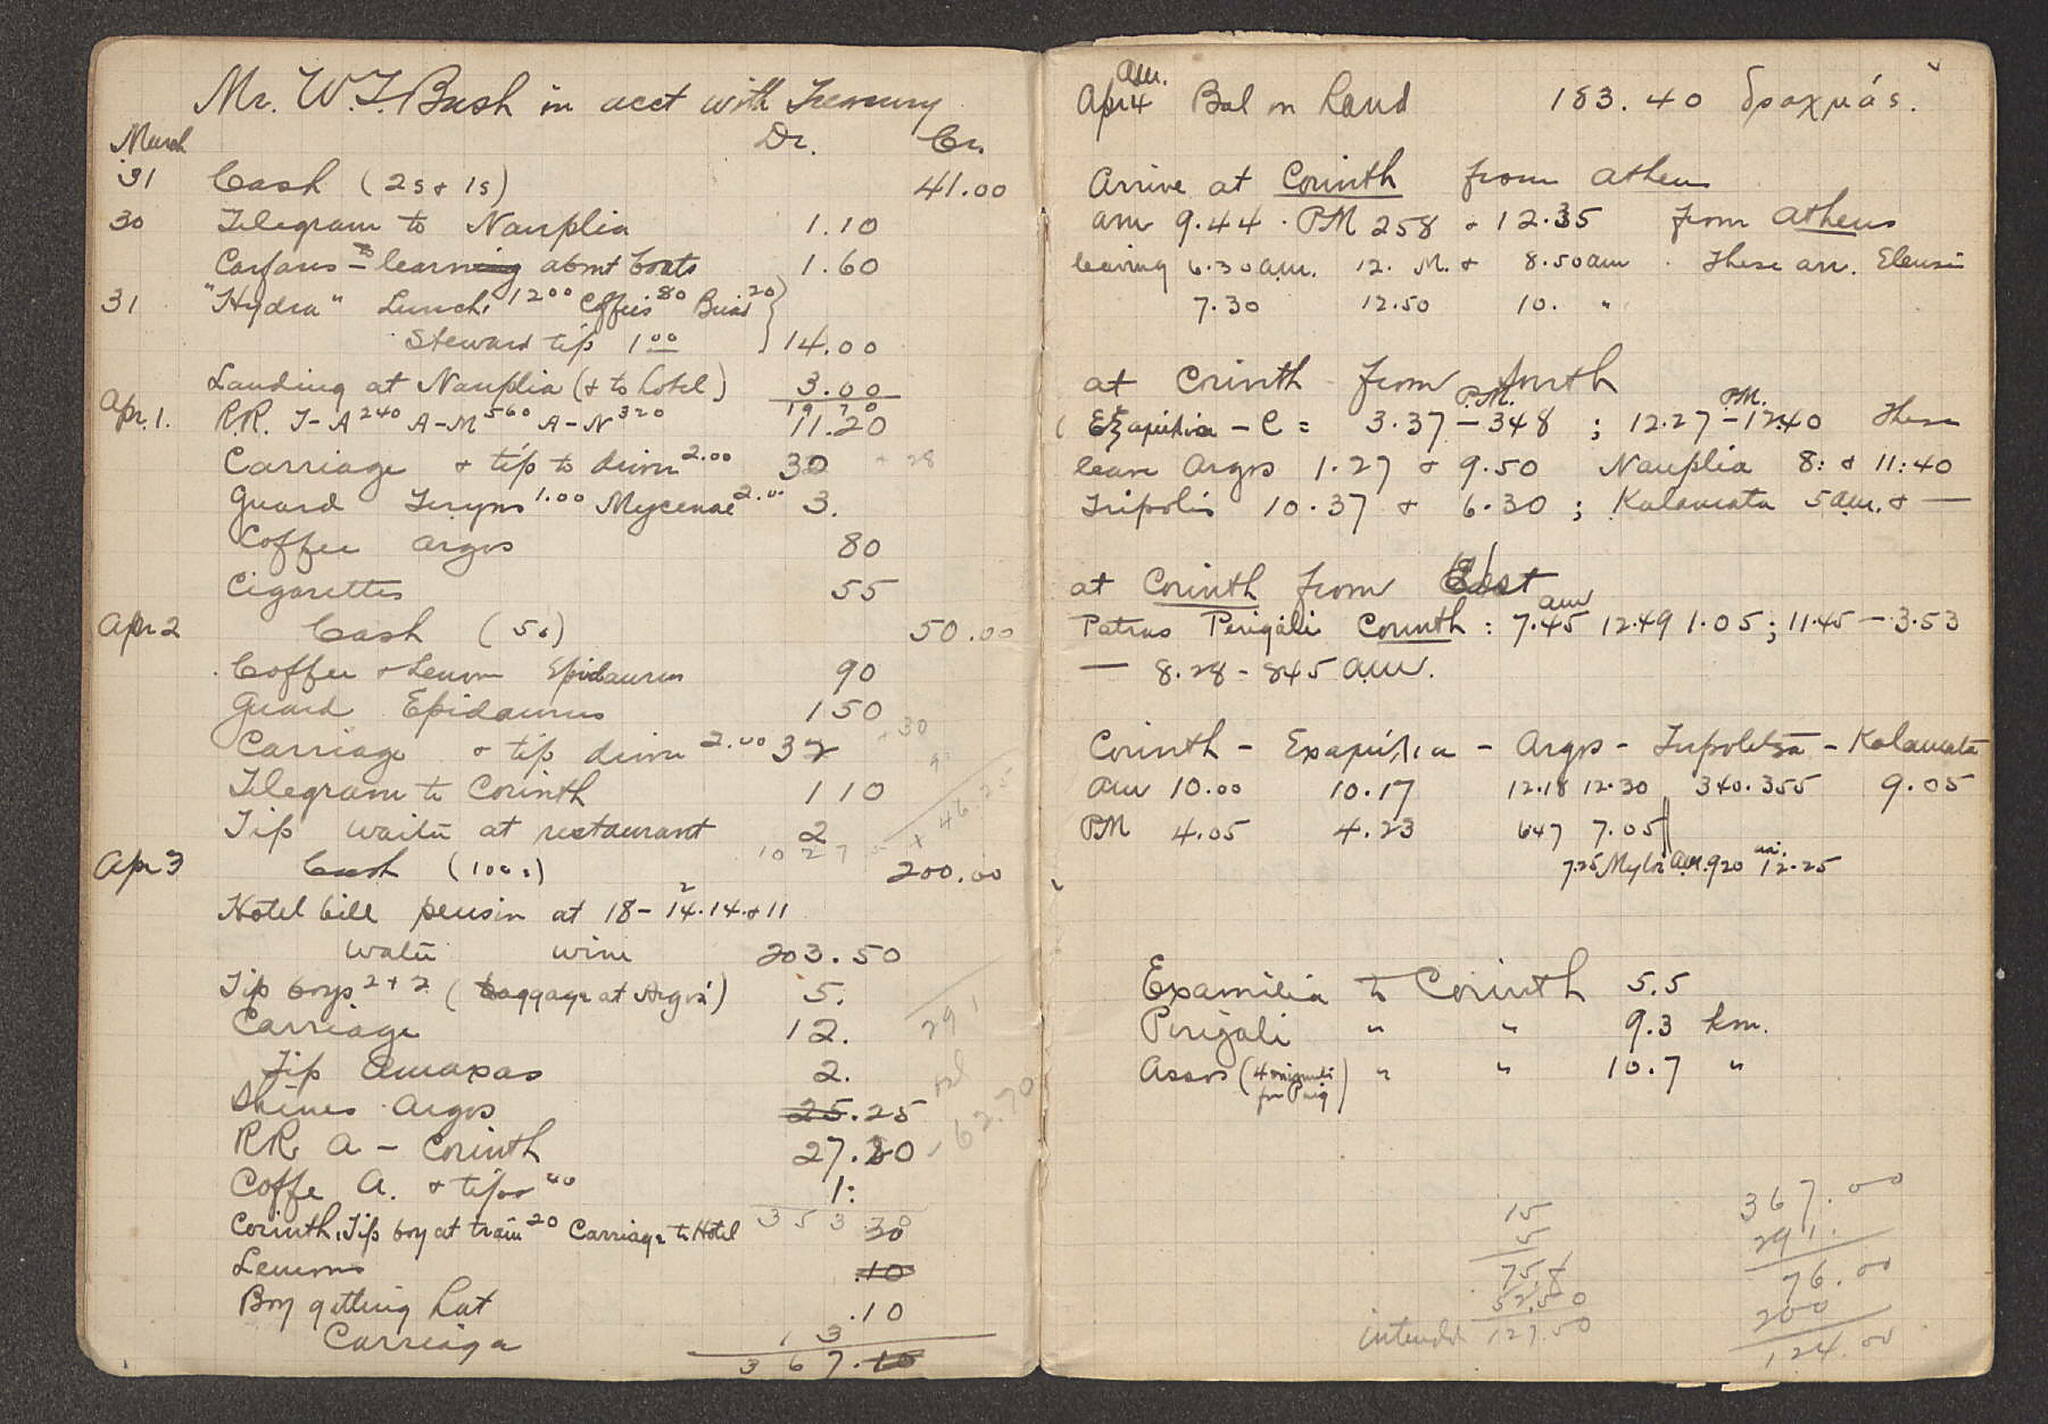 Mr. W. T. Bush in acct with Treasury
March Dr. Cr.
31 Cash (25 + 15) 41.00
30 Telegram to Nauplia 1.10
Carfares – learning about boats 1.60
31 "Hydra" Lunch 12 00 Coffees 80 20
Steward tip 1 00 14.00
Landing at Nauplia (+ to hotel) 3.00
19 70
Apr. 1. R.R. T-A 240 A-M 560 A-N 320 11.20
Carriage + tip to driver 2.00 30 + 28
Guard Tiryns 1.00 Mycenae 2.00 3.
Coffee Argos 80
Cigarettes 55
Apr 2 Cash 50.00
Coffee + Lemon Epidaurus 90
Guard Epidaurus 150
Carriage + tip driver 2.00 32 + 30
Telegram to Corinth 110
Tip waiter at restaurant 2
10 2 7
+ 46.25
Apr 3 Cash 200.00
Hotel bill pension at 18 – 14.14. + 11
2
water wine 203.50
Tip boys 2 + 2 (baggage at Argos) 5.
291
Carriage 12.
Tip Amaxas 2.
Shines Argos 25.25
bal
62.70
RR A – Corinth 27.20
Coffe A. + tips 40 1.
3 5 3
Corinth, Tip boy at train 20 Carriage to Hotel 30
Lemons .10
Boy getting hat .10
Carriage 1 3
3 6 7.10
am.
Apr 4 Bal on hand 183.40 δραχμάς.
Arrive at Corinth from Athens
am 9.44 · PM 258 + 12.35 from Athens
leaving 6.30 am. 12. M. + 8.50 am. These arr. Eleusis
7.30 12.50 10. "
at Corinth from south
P.M. P.M.
Εξαμίλια – C = 3.37 – 348 ; 12.27 – 1240 These
leave Argos 1.27 + 9.50 Nauplia 8: + 11:40
Tripolis 10.37 + 6.30 ; Kalamata 5 am. + —
at Corinth from East
am
Patras Perigali Corinth : 7.45 12.49 1.05 ; 11.45 – 3.53
— 8.28 – 845 am.
Corinth – Examilia – Argos – Tripolitza – Kalamata
am 10.00 10.17 12.18 12.30 340.355 9.05
PM 4.05 4.23 647 7.05
7.25 Myloi am. 920 12.25
Examilia to Corinth 5.5
Perigali " " 9.3 km.
Assos (4 " " 10.7 "
15
5
75.
52.50
intended 127.50
367.00
291.
76.00
200
124.00